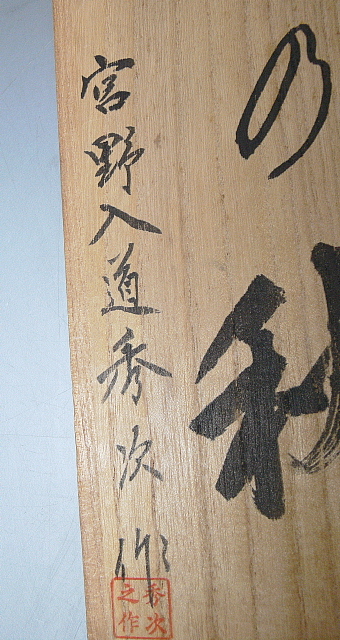 の秋
宮野入道秀次作
秀次
之作